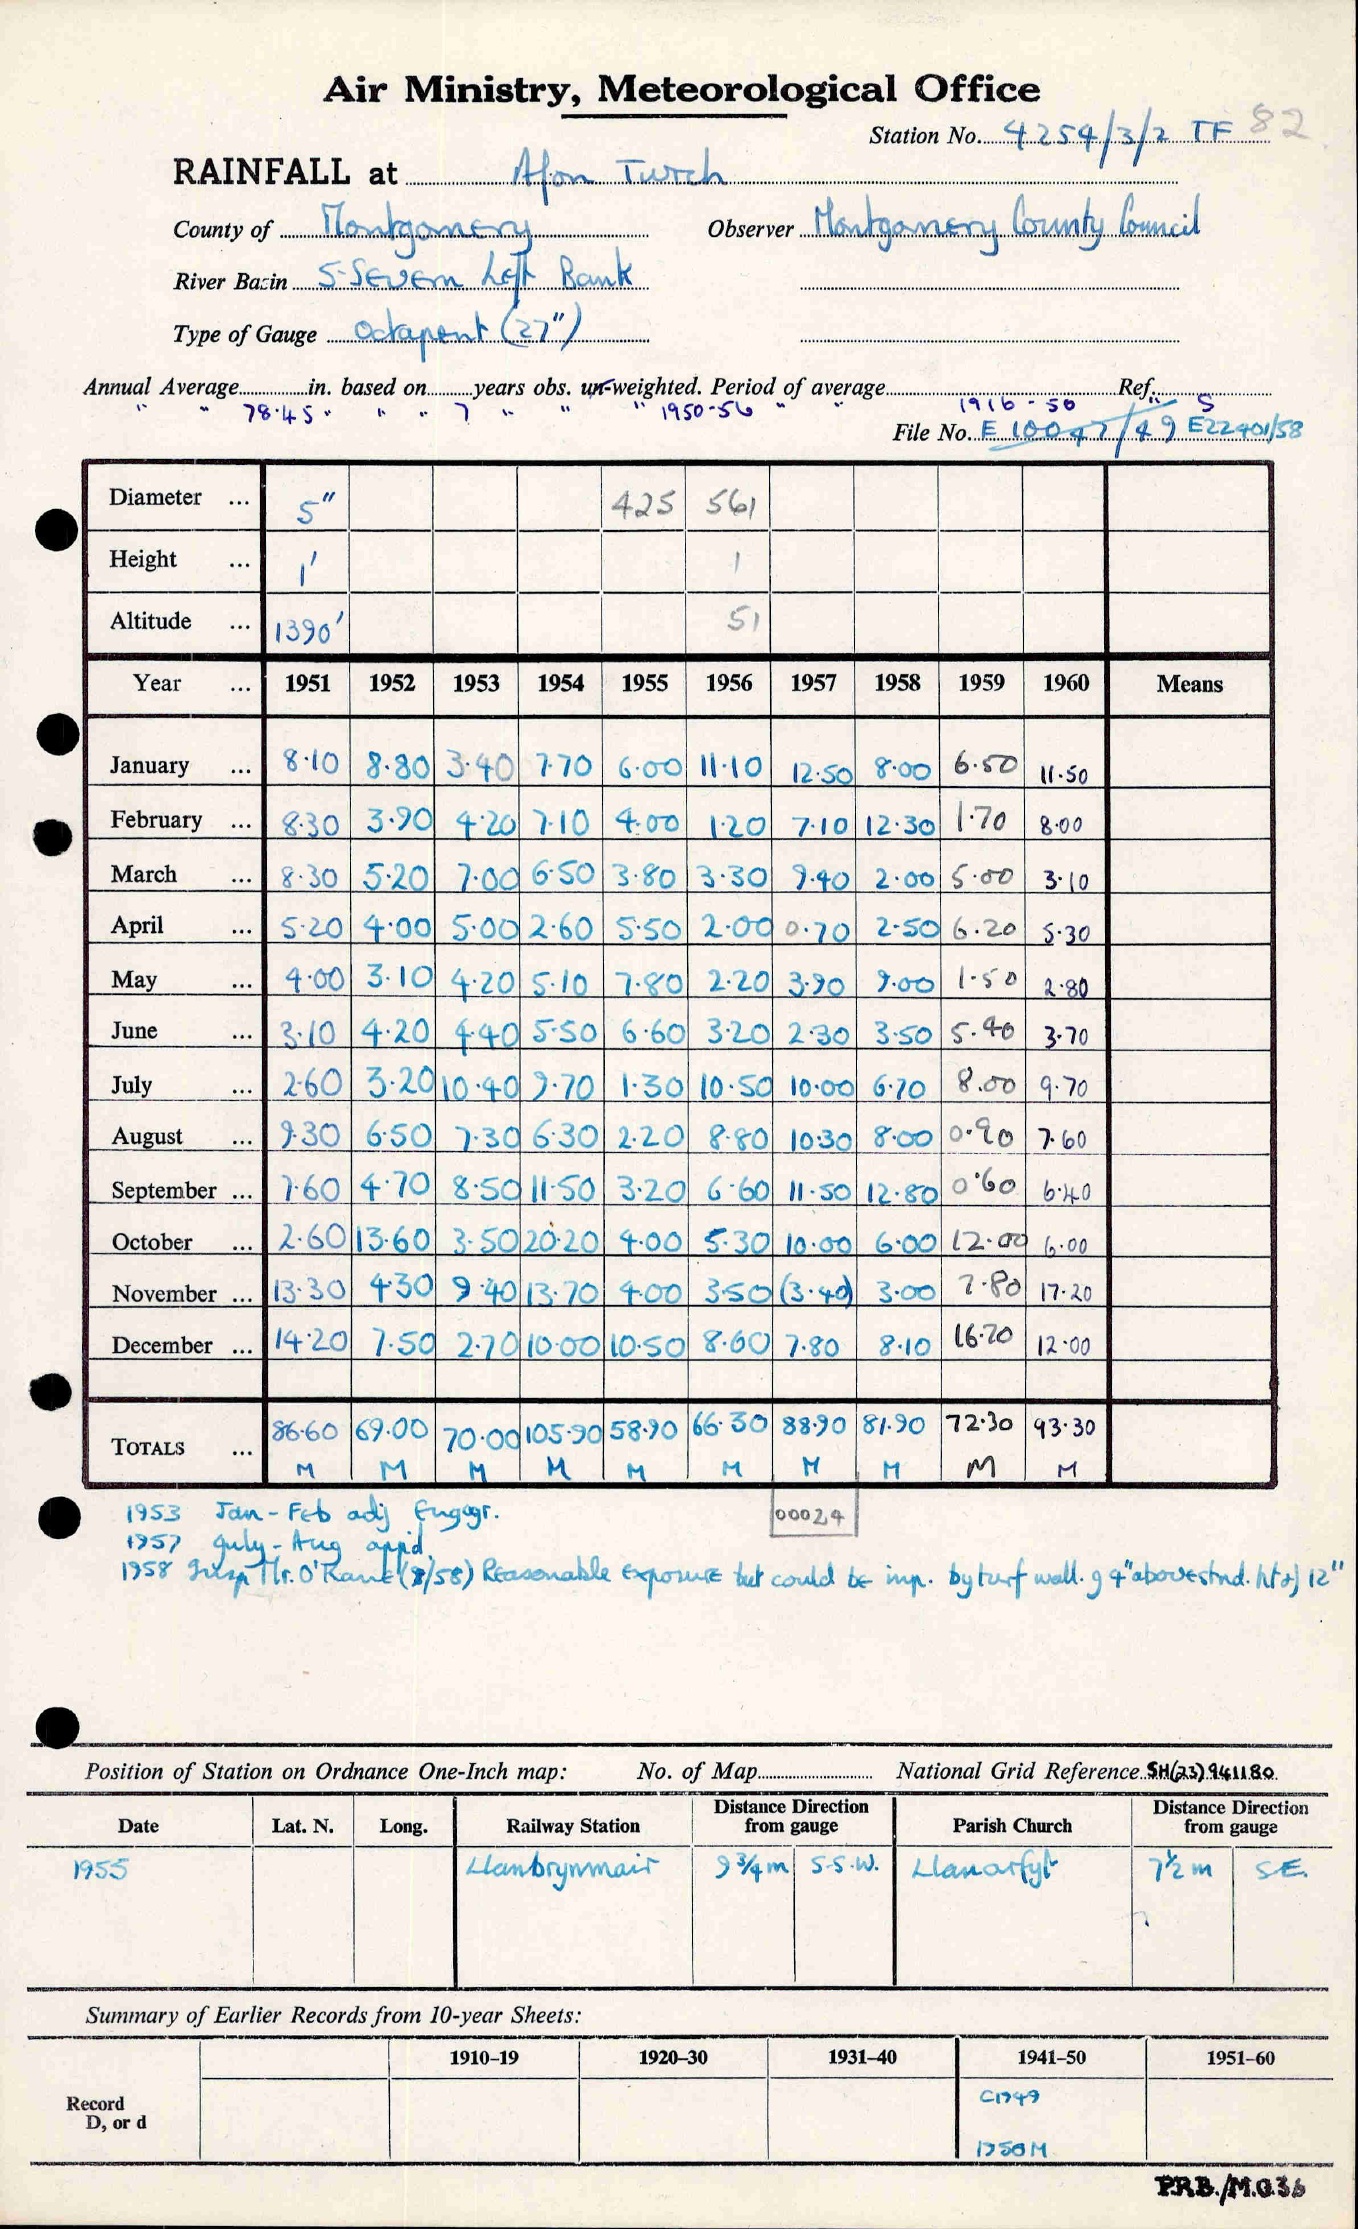 Air Ministry, Meteorological Office
Station No. 4254/3/2 TF 82
RAINFALL at Afon Twrch
County of Montgomery Observer Montgomery County Council
River Basin 5-Severn Left Bank
Type of Gauge Octapent (27")
Annual Average in. based on years obs. un-weighted. Period of average 1916-50 Ref. S
" " 78.45 " " " 7 " " " 1950-56 " " "
File No. E 10047/49 E22401/58
Diameter ... 5" 425 561
Height ... 1' 1
Altitude ... 1390' 51
Year ... 1951 1952 1953 1954 1955 1956 1957 1958 1959 1960 Means
January ... 8.10 8.80 3.40 7.70 6.00 11.10 12.50 8.00 6.50 11.50
February ... 8.30 3.90 4.20 7.10 4.00 1.20 7.10 12.30 1.70 8.00
March ... 8.30 5.20 7.00 6.50 3.80 3.30 9.40 2.00 5.00 3.10
April ... 5.20 4.00 5.00 2.60 5.50 2.00 0.70 2.50 6.20 5.30
May ... 4.00 3.10 4.20 5.10 7.80 2.20 3.90 9.00 1.50 2.80
June ... 3.10 4.20 4.40 5.50 6.60 3.20 2.30 3.50 5.40 3.70
July ... 2.60 3.20 10.40 9.70 1.30 10.50 10.00 6.70 8.00 9.70
August ... 9.30 6.50 7.30 6.30 2.20 8.80 10.30 8.00 0.90 7.60
September ... 7.60 4.70 8.50 11.50 3.20 6.60 11.50 12.80 0.60 6.40
October ... 2.60 13.60 3.50 20.20 4.00 5.30 10.00 6.00 12.00 6.00
November ... 13.30 4.30 9.40 13.70 4.00 3.50 (3.40) 3.00 7.80 17.20
December ... 14.20 7.50 2.70 10.00 10.50 8.60 7.80 8.10 16.70 12.00
TOTALS ... 86.60 69.00 70.00 105.90 58.90 66.30 88.90 81.90 72.30 93.30
M M M M M M M M M M
00024
1953 Jan-Feb adj Engagr.
1957 July-Aug appd.
1958 Insp Mr. O'Kane (8/58) Reasonable exposure but could be imp. by turf wall. g 4" above stnd. ht of 12"
Position of Station on Ordnance One-Inch map: No. of Map National Grid Reference SH(23)941180
Date Lat. N. Long. Railway Station Distance Direction from gauge Parish Church Distance Direction from gauge
1955 Llanbrynmair 9 3/4 m S.S.W. Llanarfyl 7 1/2 m S.E.
Summary of Earlier Records from 10-year Sheets:
1910-19 1920-30 1931-40 1941-50 1951-60
Record D, or d
C1949
1950M
P.R.B./M.O.36